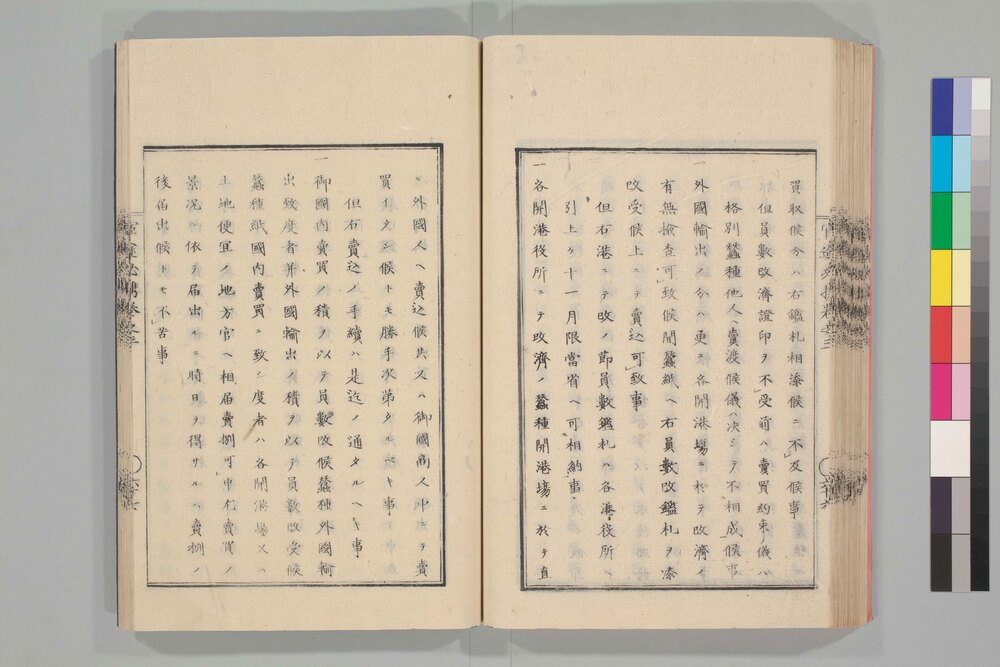 買取候分ハ右鑑札相添候ニ不及候事
但員數改濟證印ヲ不受前ハ賣買約束ノ儀ハ
格別蠶種他人ヘ賣渡候儀ハ決シテ不相成候事
一外國輸出ノ分ハ更ニ各開港場ニ於テ改濟ノ
有無撿査可致候間蠶紙ヘ右員數改鑑札ヲ添
改受候上ニテ賣込可致事
但右港ニテ改ノ節員數鑑札ハ各港役所ヘ
引上ヶ十一月限當省ヘ可相納事
一各開港役所ニテ改濟ノ蠶種開港場ニ於テ直
ニ外國人ヘ賣込候共又ハ御國商人中ニテ賣
買イタシ候トモ勝手次第タルヘキ事
但右賣込ノ手續ハ是迄ノ通タルヘキ事
一御國内賣買ノ積ヲ以テ員數改候蠶種外國輸
出致度者并外國輸出ノ積ヲ以テ員數改受候
蠶種紙國内賣買ニ致シ度者ハ各開港場又ハ
土地便宜ノ地方官ヘ相届賣捌可申尤賣買ノ
景況ニ依テ届出ルニ時日ヲ得サルハ賣捌ノ
後伯出候トモ不苦事